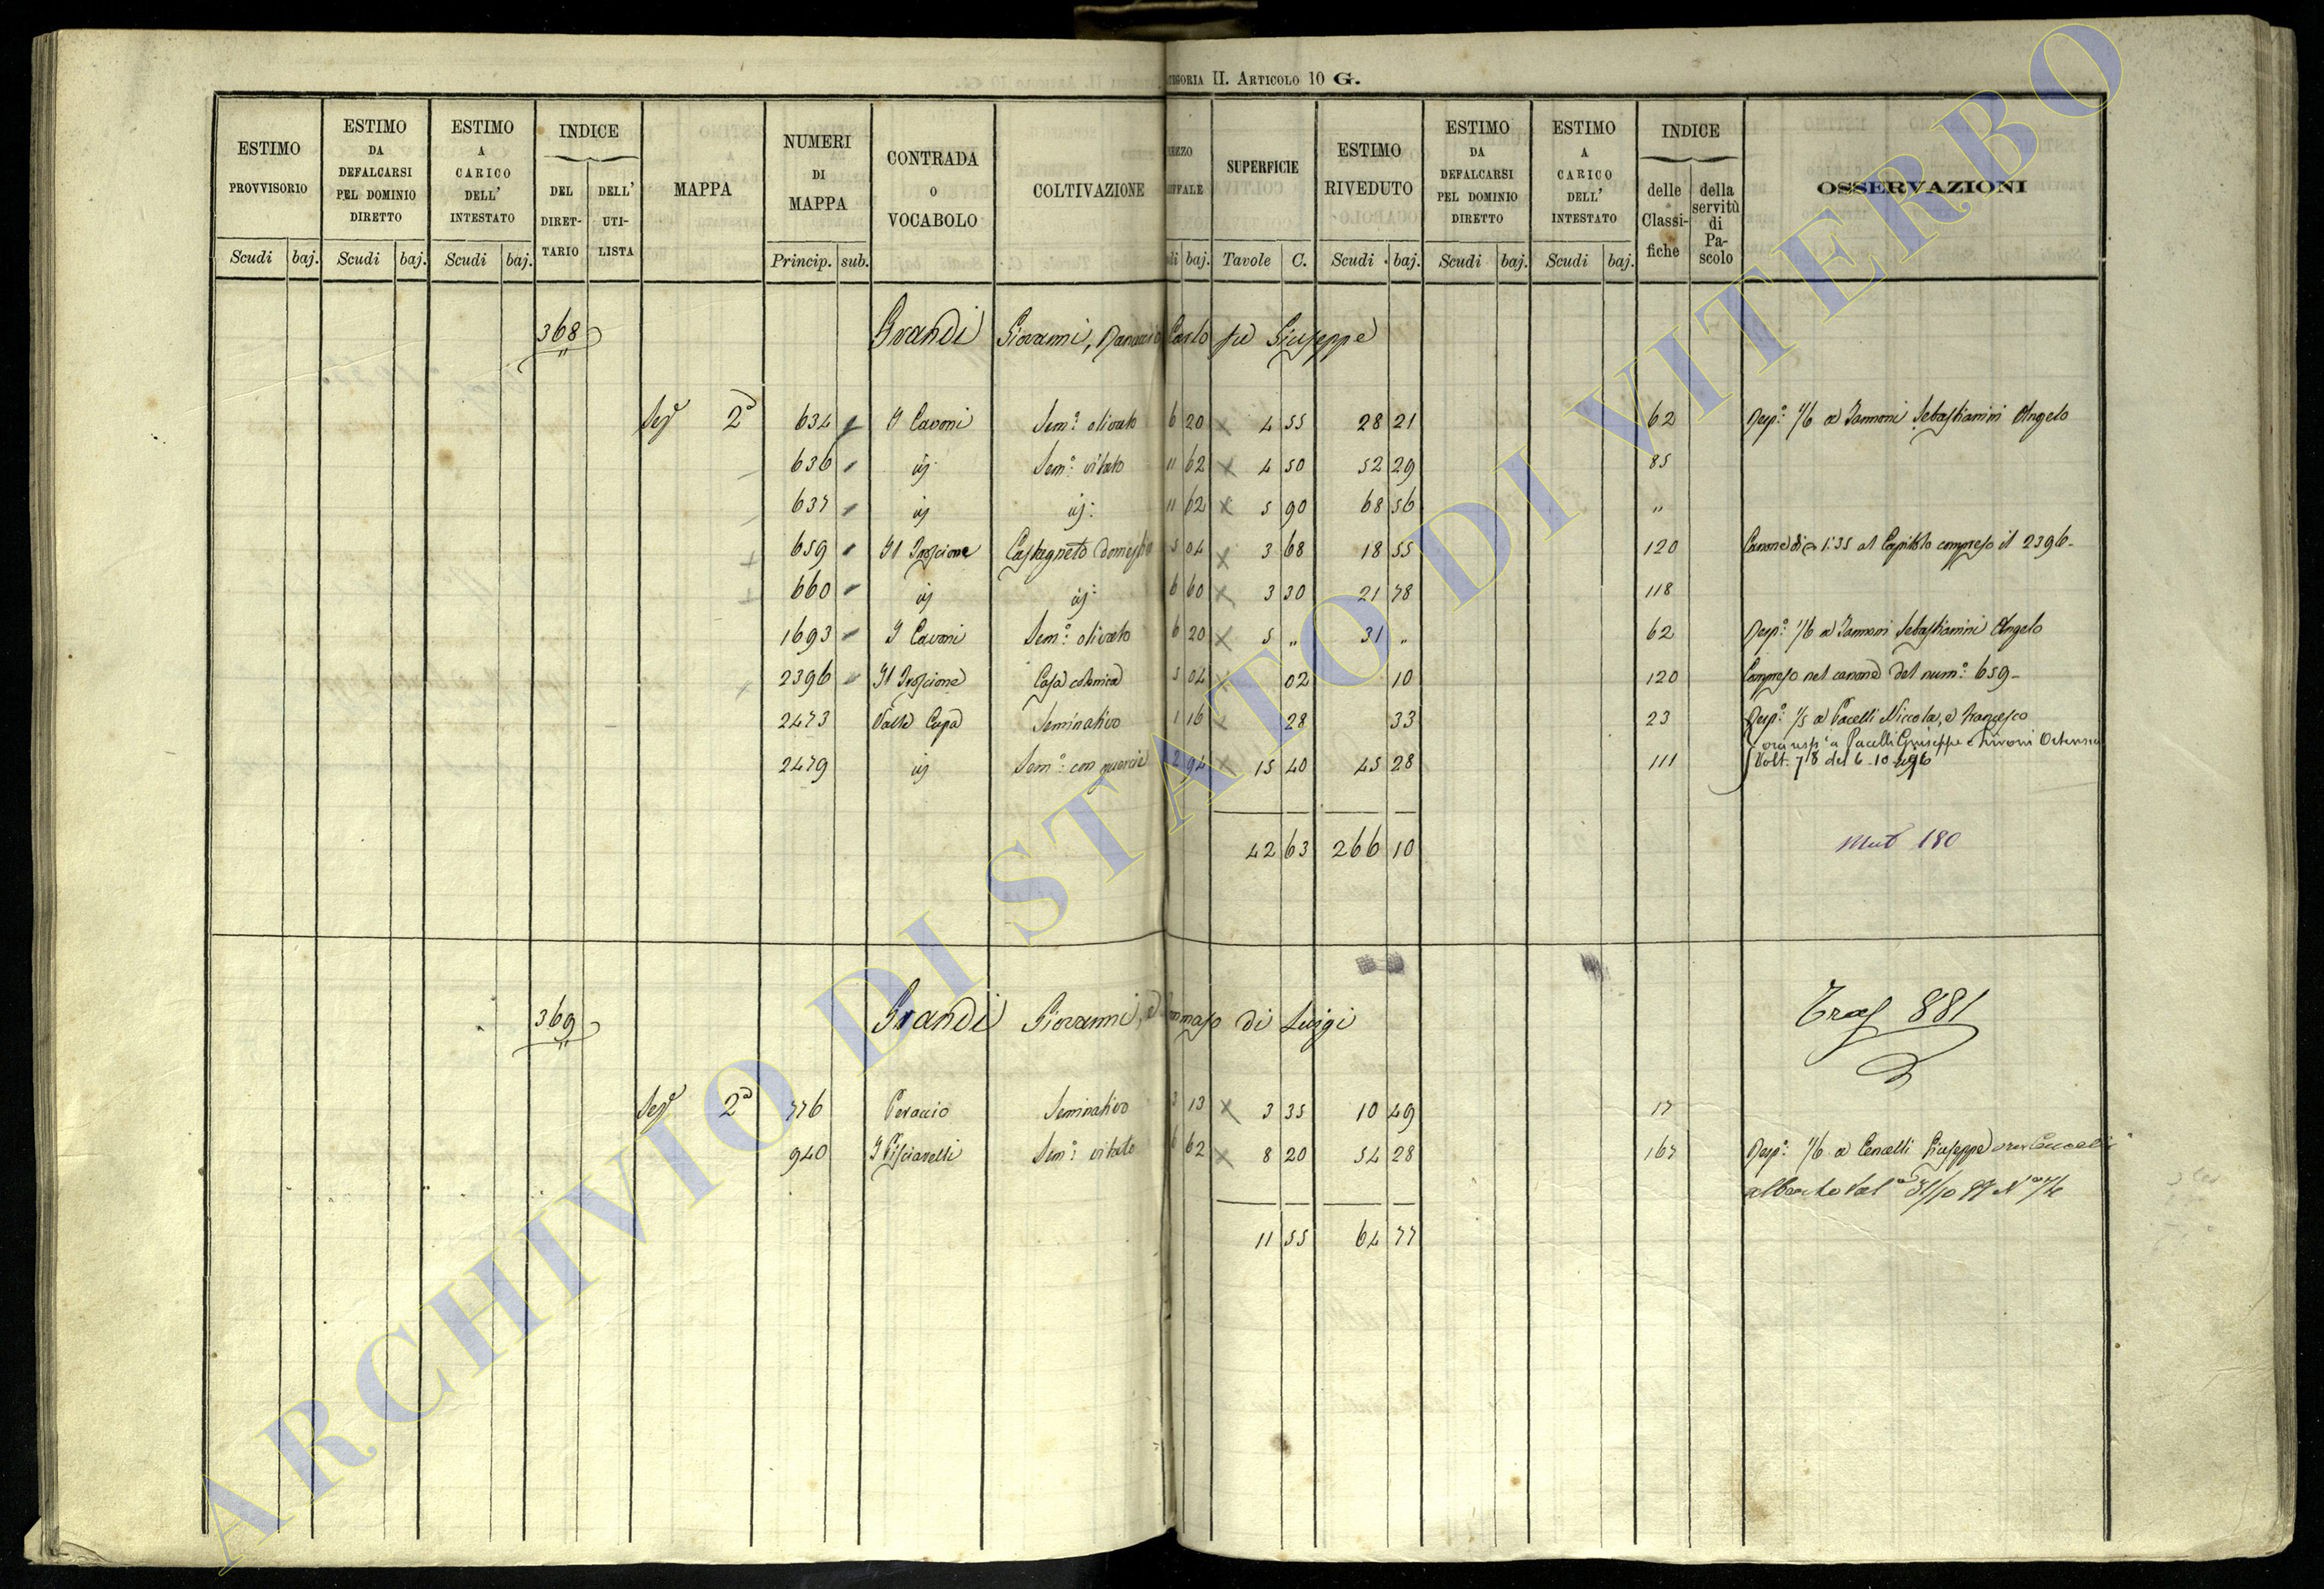 CATEGORIA II. ARTICOLO 10 G.
ESTIMO PROVVISORIO Scudi baj.
ESTIMO DA DEFALCARSI PEL DOMINIO DIRETTO Scudi baj.
ESTIMO A CARICO DELL' INTESTATO Scudi baj.
INDICE DEL DIRET- TARIO DELL' UTI- LISTA
MAPPA
NUMERI DI MAPPA Princip. sub.
CONTRADA O VOCABOLO
COLTIVAZIONE
baj.
SUPERFICIE Tavole C.
ESTIMO RIVEDUTO Scudi baj.
ESTIMO DA DEFALCARSI PEL DOMINIO DIRETTO Scudi baj.
ESTIMO A CARICO DELL' INTESTATO Scudi baj.
INDICE delle Classi- fiche della servitù di Pa- scolo
OSSERVAZIONI
368 Grandi Giovanni, Carlo fu Giuseppe
Sez.e 2a 634 I Cavoni Sem.o olivato 6 20 4 55 28 21 62 Resp.o 1/6 a Iannoni Sebastianini Angelo
636 id Sem.o vitato 11 62 4 50 52 29 85
637 id id: 11 62 5 90 68 56 "
659 Il Troscione Castagneto domestico 5 04 3 68 18 55 120 Canone di 1:35 al Capitolo compreso il 2396-
660 id id: 6 60 3 30 21 78 118
1693 I Cavoni Sem.o olivato 6 20 5 " 31 " 62 Resp.o 1/6 a Iannoni Sebastianini Angelo
2396 Il Troscione Casa colonica 5 04 02 10 120 Compreso nel canone del num.o 659-
2473 Valle Cupa Seminativo 1 16 28 33 23 Resp.o 1/5 a Pacelli Niccola, e Francesco
ora risp.a a Pacelli Giuseppe e
2479 id Sem.o con querce 2 94 15 40 45 28 111 Volt. 78 del 6-10-
42 63 266 10 Mut 180
369 Grandi Giovanni, e Tommaso di Luigi Tras 881
Sez.e 2a 776 Peraccio Seminativo 3 13 3 35 10 49 17
940 I Pisciarelli Sem.o vitato 6 62 8 20 54 28 167 Resp.o 1/6 a Cencelli Giuseppe ora Cencelli
Alberto
11 55 64 77
ARCHIVIO DI STATO DI VITERBO